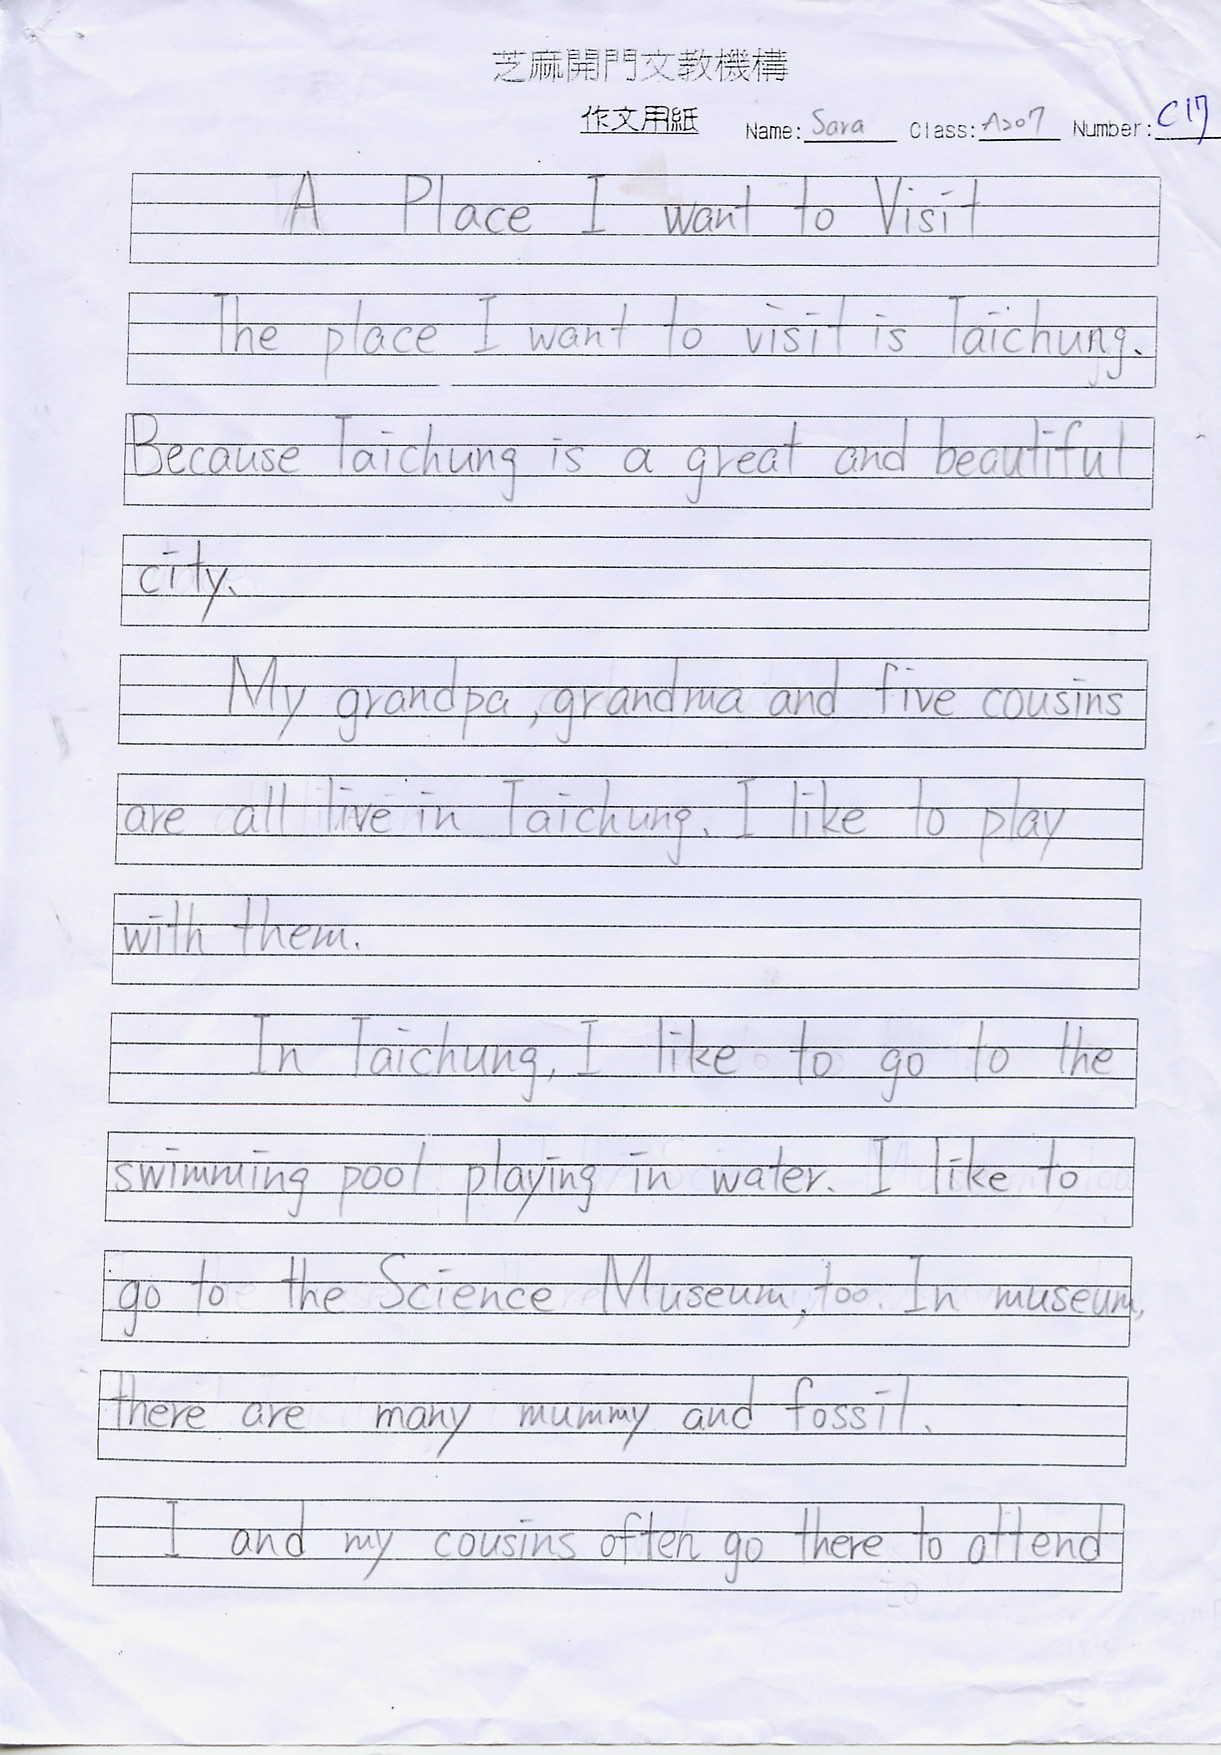 芝麻開門文教機構
作文用紙 Name: Sara Class: A207 Number: C17
A Place I want to Visit
The place I want to visit is Taichung.
Because Taichung is a great and beautiful
city.
My grandpa, grandma and five cousins
are all live in Taichung. I like to play
with them.
In Taichung, I like to go to the
swimming pool playing in water. I like to
go to the Science Museum, too. In museum,
there are many mummy and fossil.
I and my cousins often go there to attend